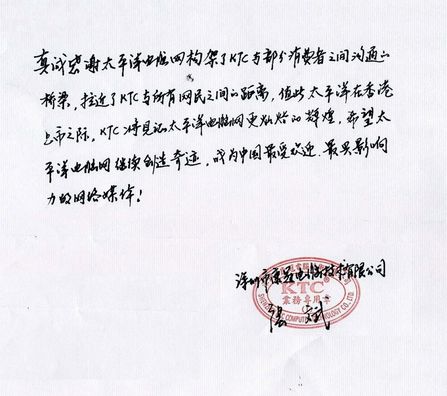 真诚感谢太平洋电脑网构架了KTC与部分消费者之间沟通的
桥梁，拉近了KTC与所有网民之间的距离，值此太平洋在香港
上市之际，KTC将见证太平洋电脑网更灿烂的辉煌，希望太
平洋电脑网继续创造奇迹，成为中国最受欢迎、最具影响
力的网络媒体！
深圳市康冠电脑技术有限公司
KTC®
業務專用章
COMPUTER TECHNOLOGY CO., LTD.
张斌